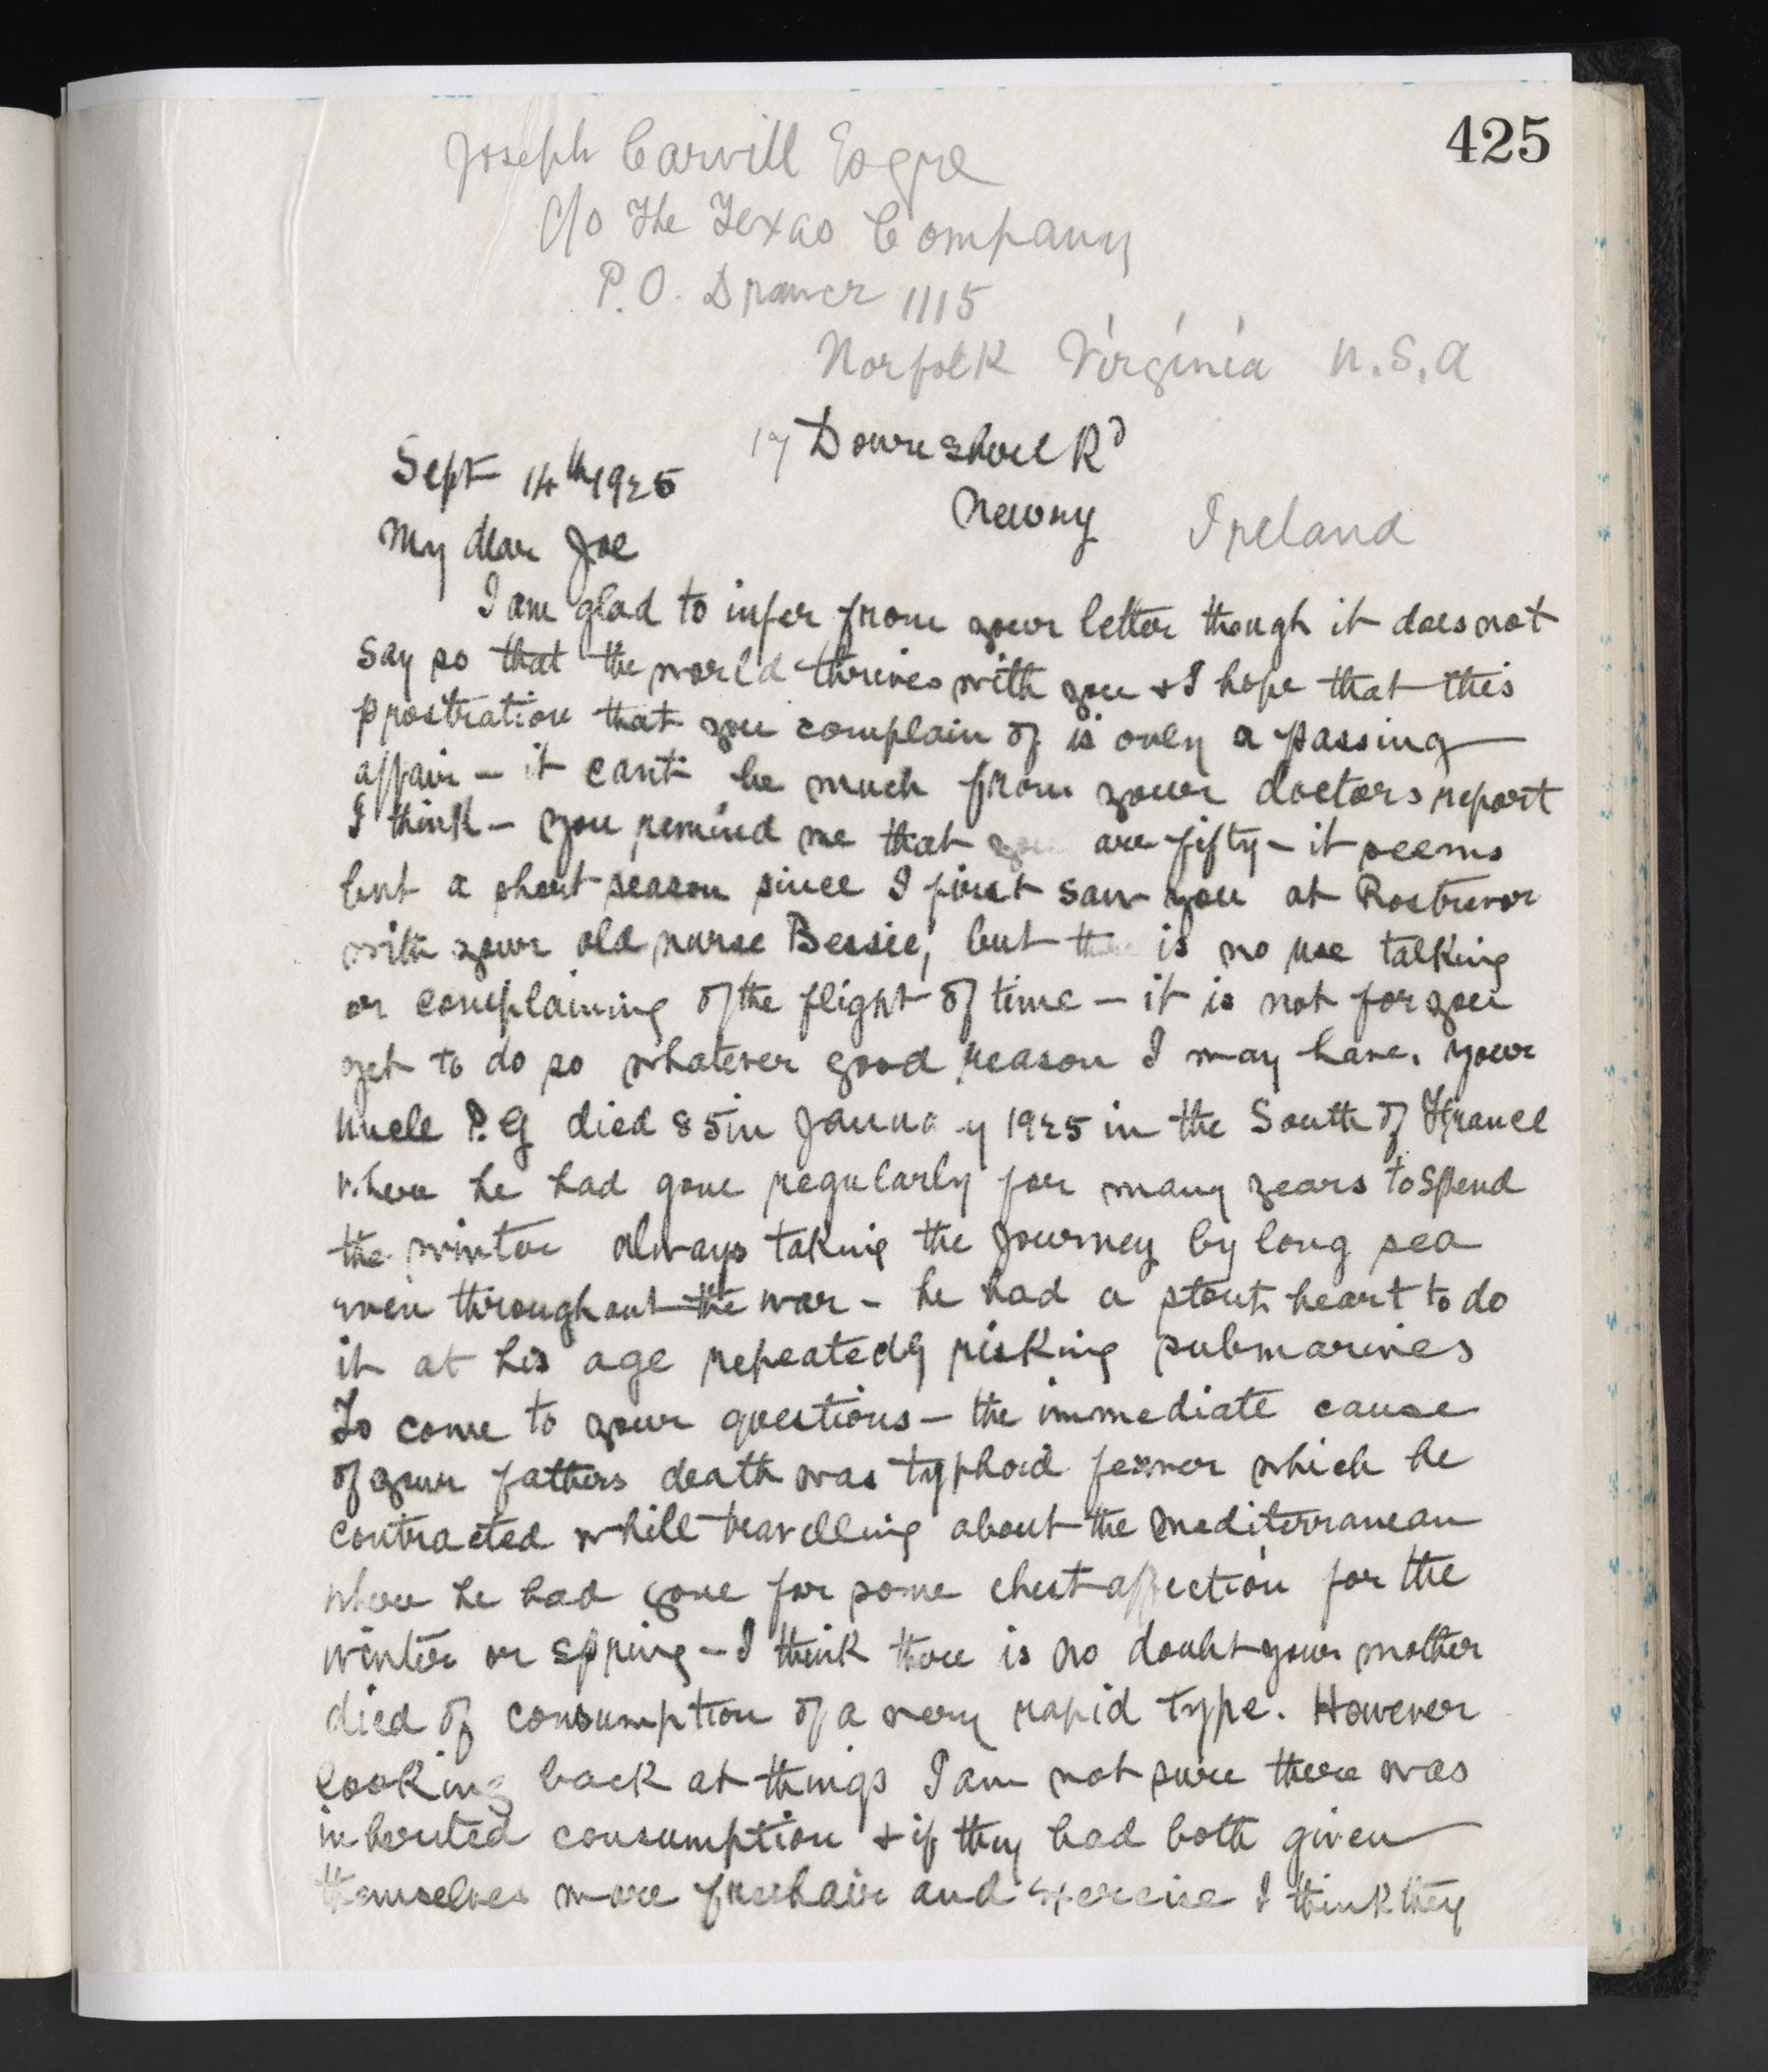 425
Joseph Carvill Esqre
C/o The Texas Company
P.O. Drawer 1115
Norfolk Virginia U.S.A
17 Downshire Rd
Sept 14th 1925
Newry Ireland
My dear Joe
I am glad to infer from your letter though it does not
say so that the world thrives with you & I hope that this
prostration that you complain of is only a passing
affair - it cant be much from your doctors report
I think - you remind me that you are fifty - it seems
but a short season since I first saw you at Rostrevor
with your old nurse Bessie, but there is no use talking
or complaining of the flight of time - it is not for you
yet to do so whatever good reason I may have. Your
Uncle P.G died 85 in January 1925 in the South of France
where he had gone regularly for many years to spend
the winter always taking the journey by long sea
even throughout the war - he had a stout heart to do
it at his age repeatedly risking submarines
To come to your questions - the immediate cause
of your fathers death was typhoid fever which he
contracted while travelling about the Mediterranean
where he had gone for some chest affection for the
winter or spring - I think there is no doubt your mother
died of consumption of a very rapid type. However
looking back at things I am not sure there was
inherited consumption & if they had both given
themselves more fresh air and exercise I think they